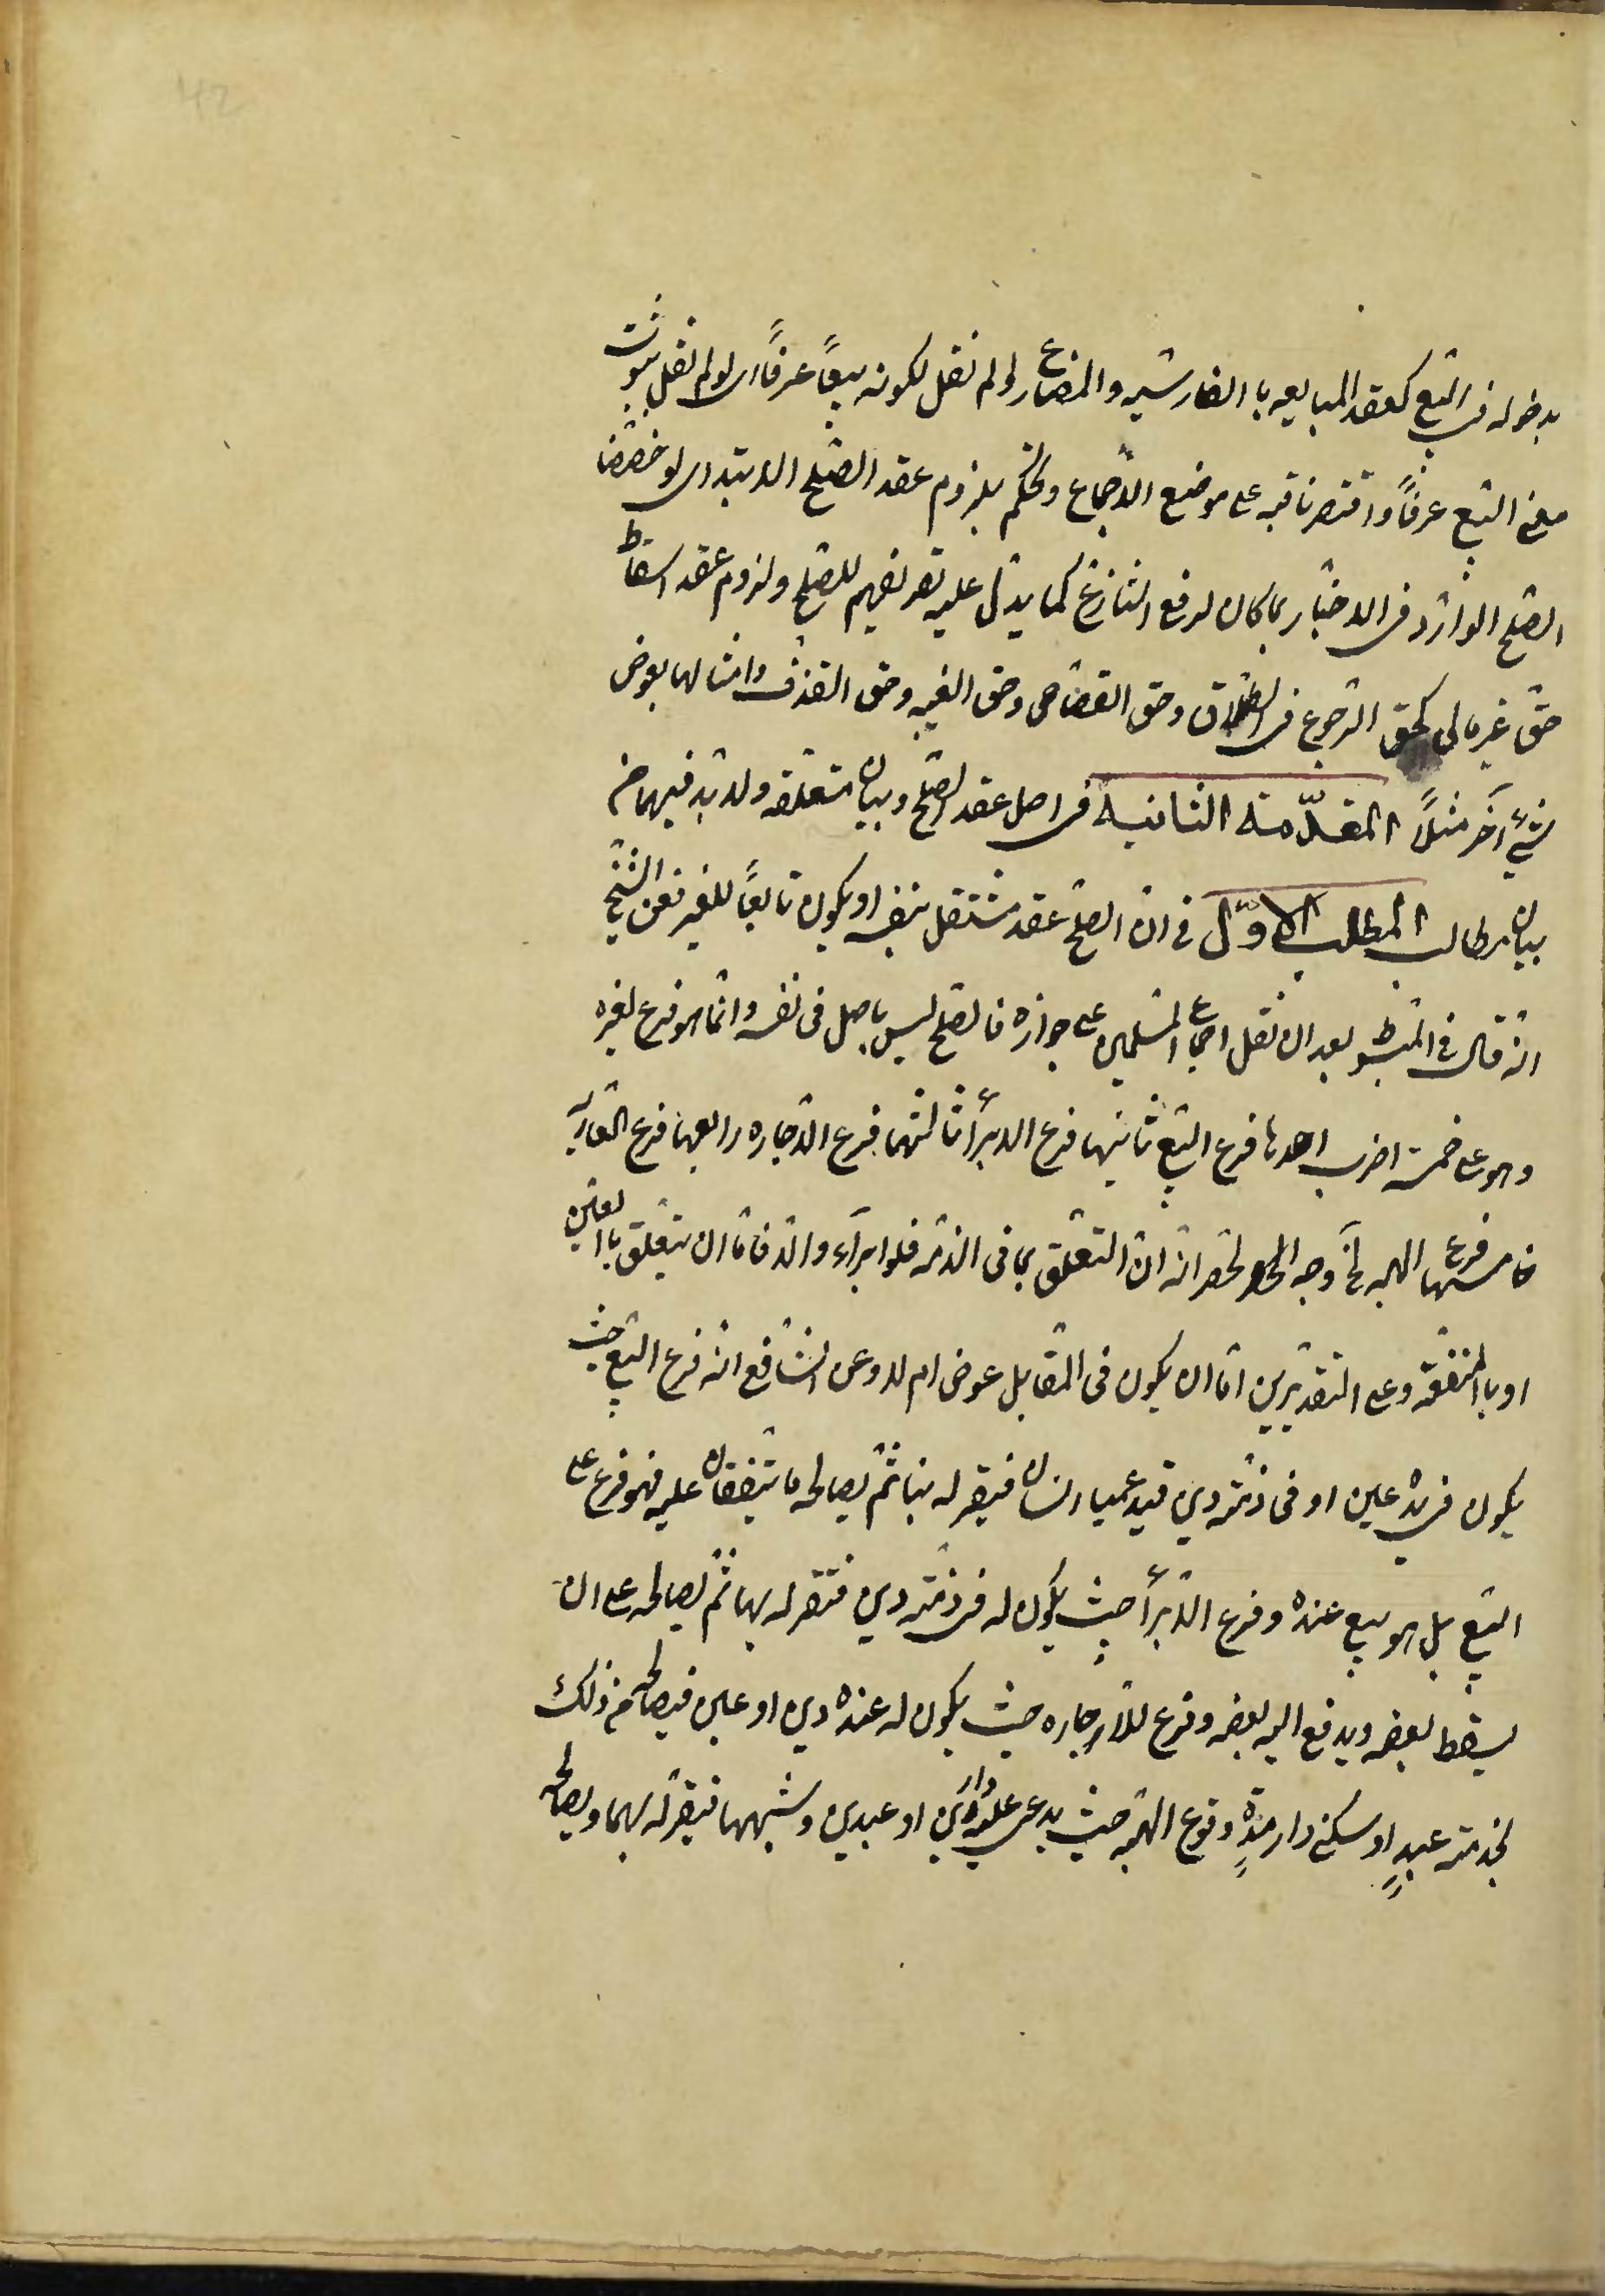 42
بدخوله في البيع كعقد المبايعه با الفارسيه والمضارع لو لم نقل لكونه بيعاً عرفاً اى لو لم نقل بثبوت
معنى البيع عرفاً واقتصرنا فيه على موضع الاجماع ولحكم بلزوم عقد الصلح الابتداى لو خصصنا
الصلح الوارد فى الاخبار بما كان لدفع التنازع كما يدل عليه تعريفهم للصلح ولزوم عقد اسقاط
حق غير مالى كحق الرجوع فى الطلاق وحق القصاص وحق الغيبه وحق القذف وامثالها بعوض
شئ آخر مثلاً المقدّمة الثانية فى اصل عقد الصلح وبيان متعلقه ولابد فيهما من
بيان مطالب المطلب الاوّل في ان الصلح عقد مستقل بنفسه او يكون تابعاً للغير فعن الشيخ
انه قال في المبسوط بعد ان نقل اجماع المسلمين على جوازه فالصلح ليس باصل فى نفسه وانما هو فرع لغيره
وهو على خمسة اضرب احدها فرع البيع ثانيها فرع الابراء ثالثها فرع الاجاره رابعها فرع العاريه
خامسها فرع الهبه وجه الحصر انه ان التعلق بما فى الذمه فلوابرآء والا فاما ان يتعلق با العين
او با المنفعة وعلى التقديرين اما ان يكون فى المقابل عوض ام لا وعن الشافع انه فرع البيع حيث
يكون فى يده عين او فى ذمته دين فيدعيها انسان فيقر له بها ثم يصالحه ما يتفقان عليه فهو فرع على
البيع بل هو بيع عنده وفرع الابراء حيث يكون له فى ذمته دين فتقر له بها ثم يصالحه على ان
يسقط بعضه ويدفع اليه بعضه وفرع للاجاره حيث يكون له عنده دين او عين فيصالحه من ذلك
لخدمته عبدٍ او سكنى دار مدةٍ وفرع الهبه حيث يدعى عليه دارين او عبدين وشبهها فيقر له بهما ويصالحه